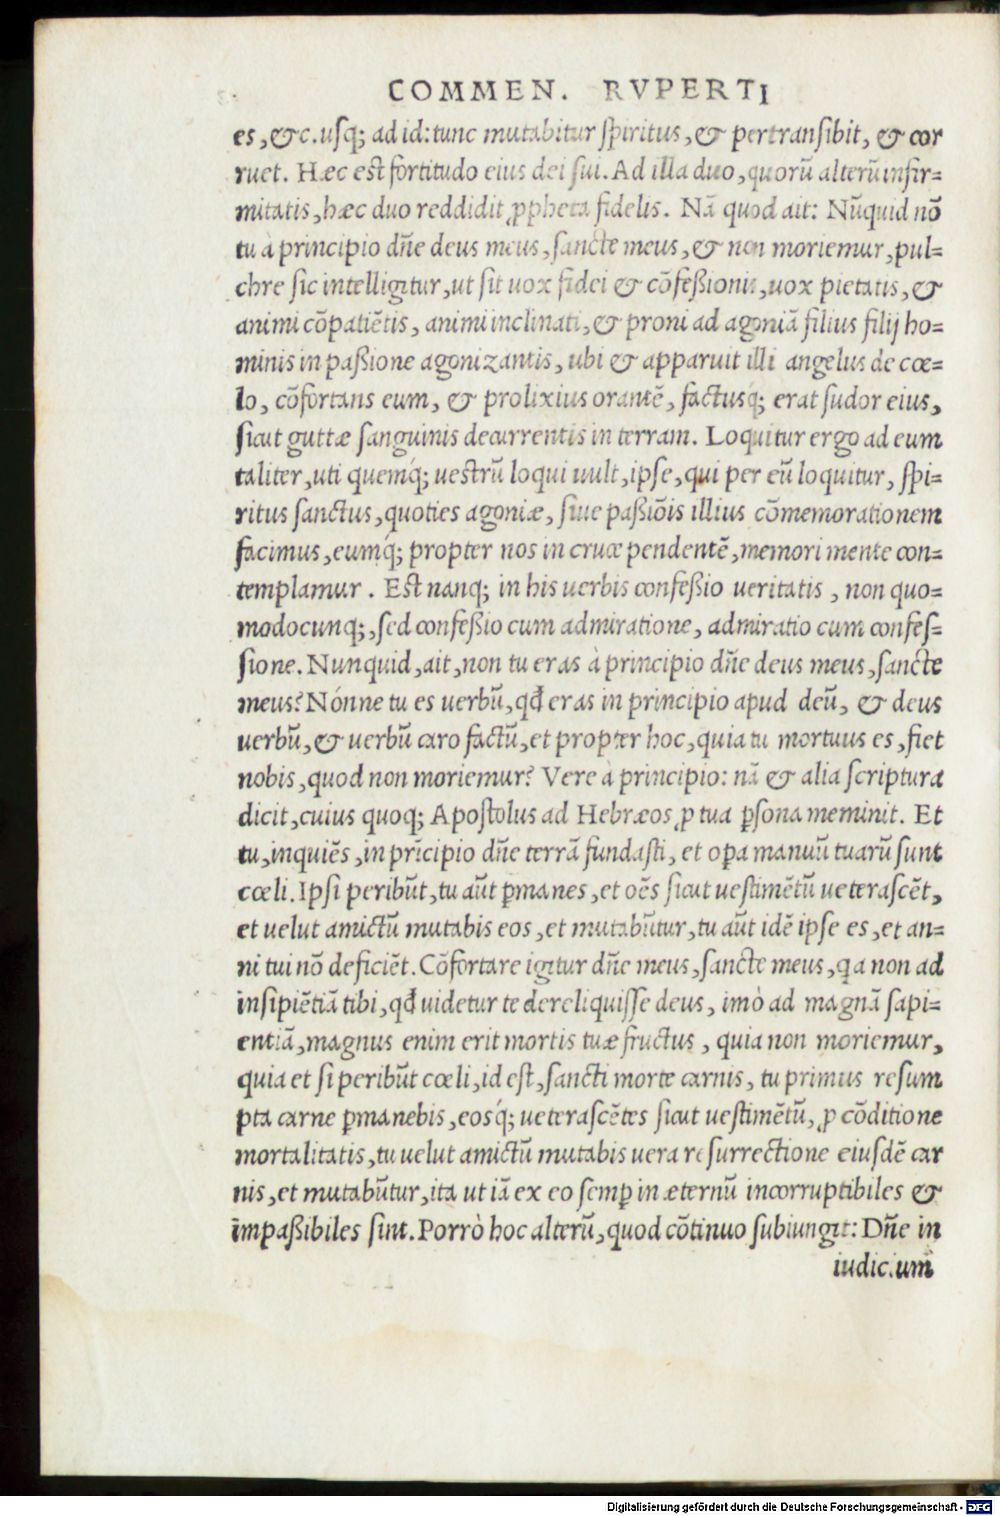 COMMEN. RVPERTI
es, &c. usq; ad id: tunc mutabitur spiritus, & pertransibit, & cor
ruet. Hæc est fortitudo eius dei sui. Ad illa duo, quorũ alterũ infir=
mitatis, hæc duo reddidit ꝓpheta fidelis. Nã quod ait: Nũquid nõ
tu à principio dñe deus meus, sancte meus, & non moriemur, pul=
chre sic intelligitur, ut sit uox fidei & cõfeßionis, uox pietatis, &
animi cõpatiẽtis, animi inclinati, & proni ad agoniã filius filij ho=
minis in paßione agonizantis, ubi & apparuit illi angelus de cœ=
lo, cõfortans eum, & prolixius orantẽ, factusq́; erat sudor eius,
sicut guttæ sanguinis decurrentis in terram. Loquitur ergo ad eum
taliter, uti quemq́; uestrũ loqui uult, ipse, qui per eũ loquitur, spi=
ritus sanctus, quoties agoniæ, siue paßiõis illius cõmemorationem
facimus, eumq́; propter nos in cruce pendentẽ, memori mente con=
templamur. Est nanq; in his uerbis confeßio ueritatis, non quo=
modocunq;, sed confeßio cum admiratione, admiratio cum confes=
sione. Nunquid, ait, non tu eras à principio dñe deus meus, sancte
meus? Nónne tu es uerbũ, qđ eras in principio apud deũ, & deus
uerbũ, & uerbũ caro factũ, et propter hoc, quia tu mortuus es, fiet
nobis, quod non moriemur? Vere à principio: nã & alia scriptura
dicit, cuius quoq; Apostolus ad Hebræos ꝓ tua ꝑsona meminit. Et
tu, inquiẽs, in prĩcipio dñe terrã fundasti, et oꝑa manuũ tuarũ sunt
cœli. Ipsi peribũt, tu aũt ꝑmanes, et oẽs sicut uestimẽtũ ueterascẽt,
et uelut amictũ mutabis eos, et mutabũtur, tu aũt idẽ ipse es, et an=
ni tui nõ deficiẽt. Cõfortare igitur dñe meus, sancte meus, q̃a non ad
insipiẽtiã tibi, qđ uidetur te dereliquisse deus, imò ad magnã sapi=
entiã, magnus enim erit mortis tuæ fructus, quia non moriemur,
quia et si peribũt cœli, id est, sancti morte carnis, tu primus resum
pta carne ꝑmanebis, eosq́; ueterascẽtes sicut uestimẽtũ, ꝓ cõditione
mortalitatis, tu uelut amictũ mutabis uera resurrectione eiusdẽ car
nis, et mutabũtur, ita ut iã ex eo semꝑ in æternũ incorruptibiles &
impaßibiles sint. Porrò hoc alterũ, quod cõtinuo subiungit: Dñe in
iudicium
Digitalisierung gefördert durch die Deutsche Forschungsgemeinschaft - DFG